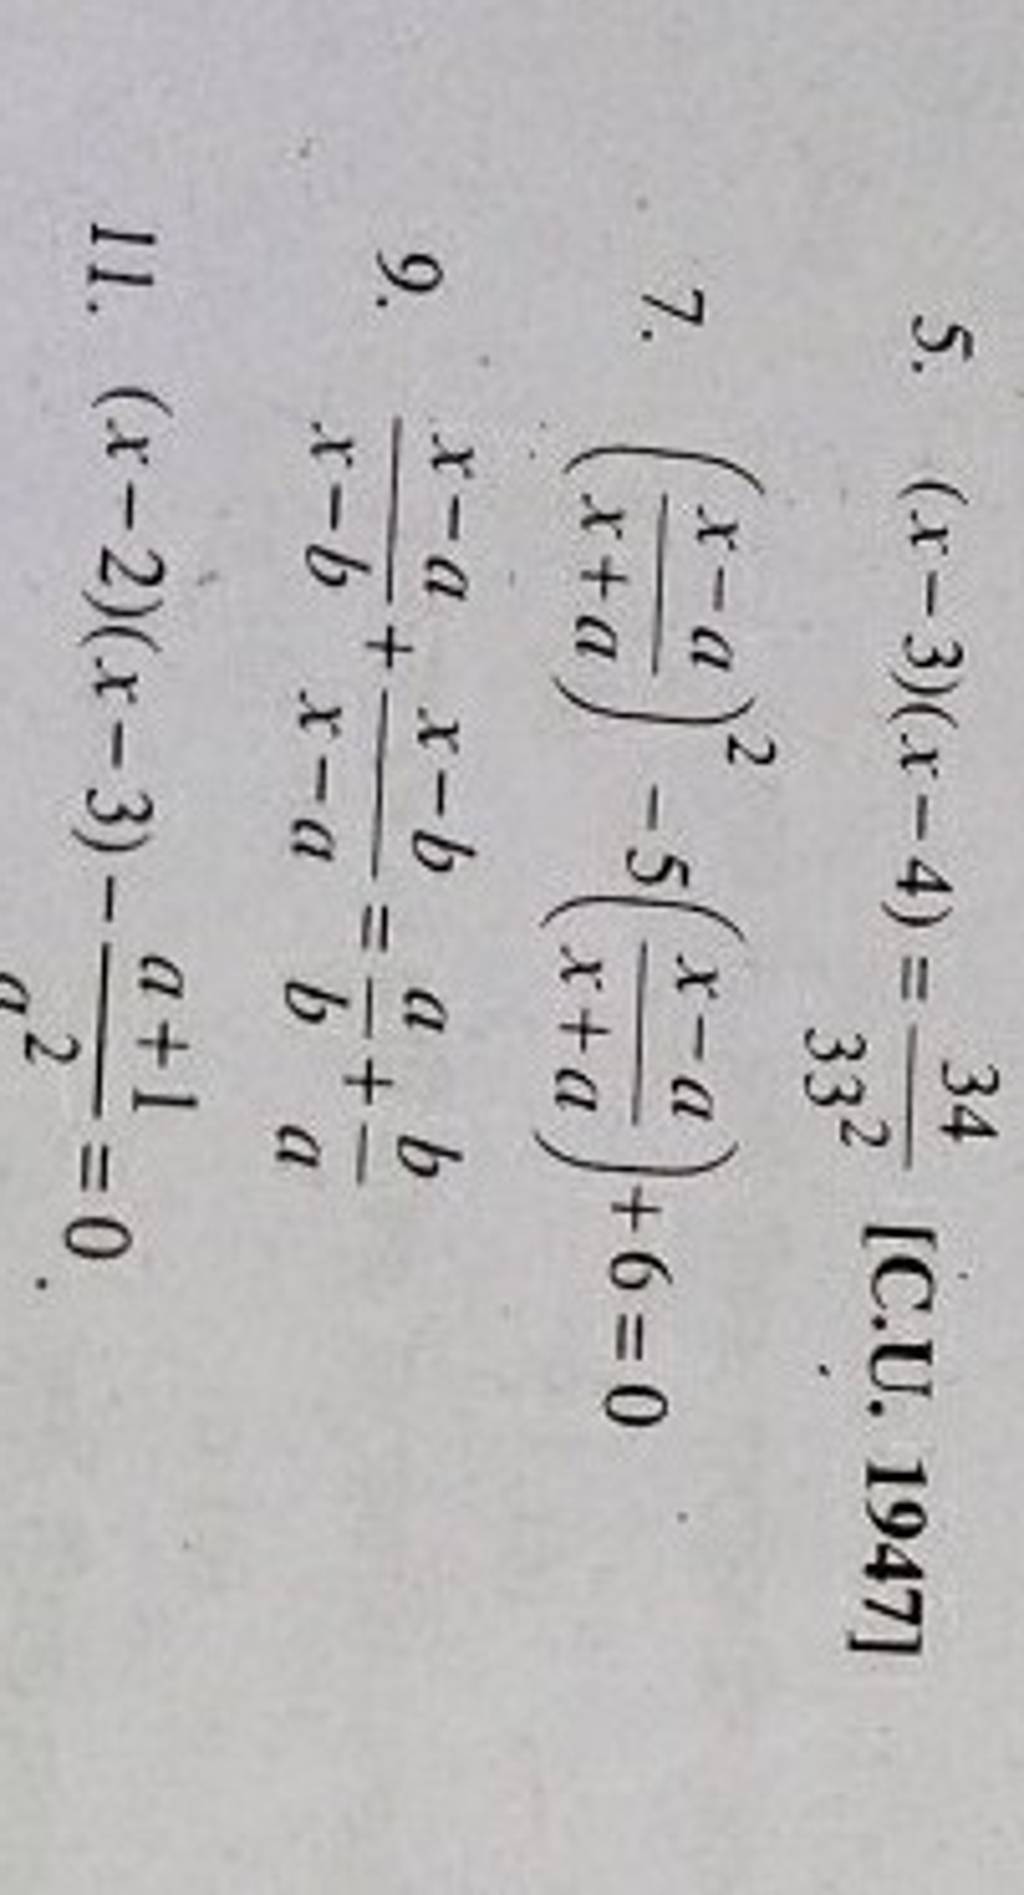 5. (x-3)(x-4) = \frac{34}{33^2} [C.U. 1947]
7. \left(\frac{x-a}{x+a}\right)^2 - 5\left(\frac{x-a}{x+a}\right) + 6 = 0
9. \frac{x-a}{x-b} + \frac{x-b}{x-a} = \frac{a}{b} + \frac{b}{a}
11. (x-2)(x-3) - \frac{a+1}{a^2} = 0